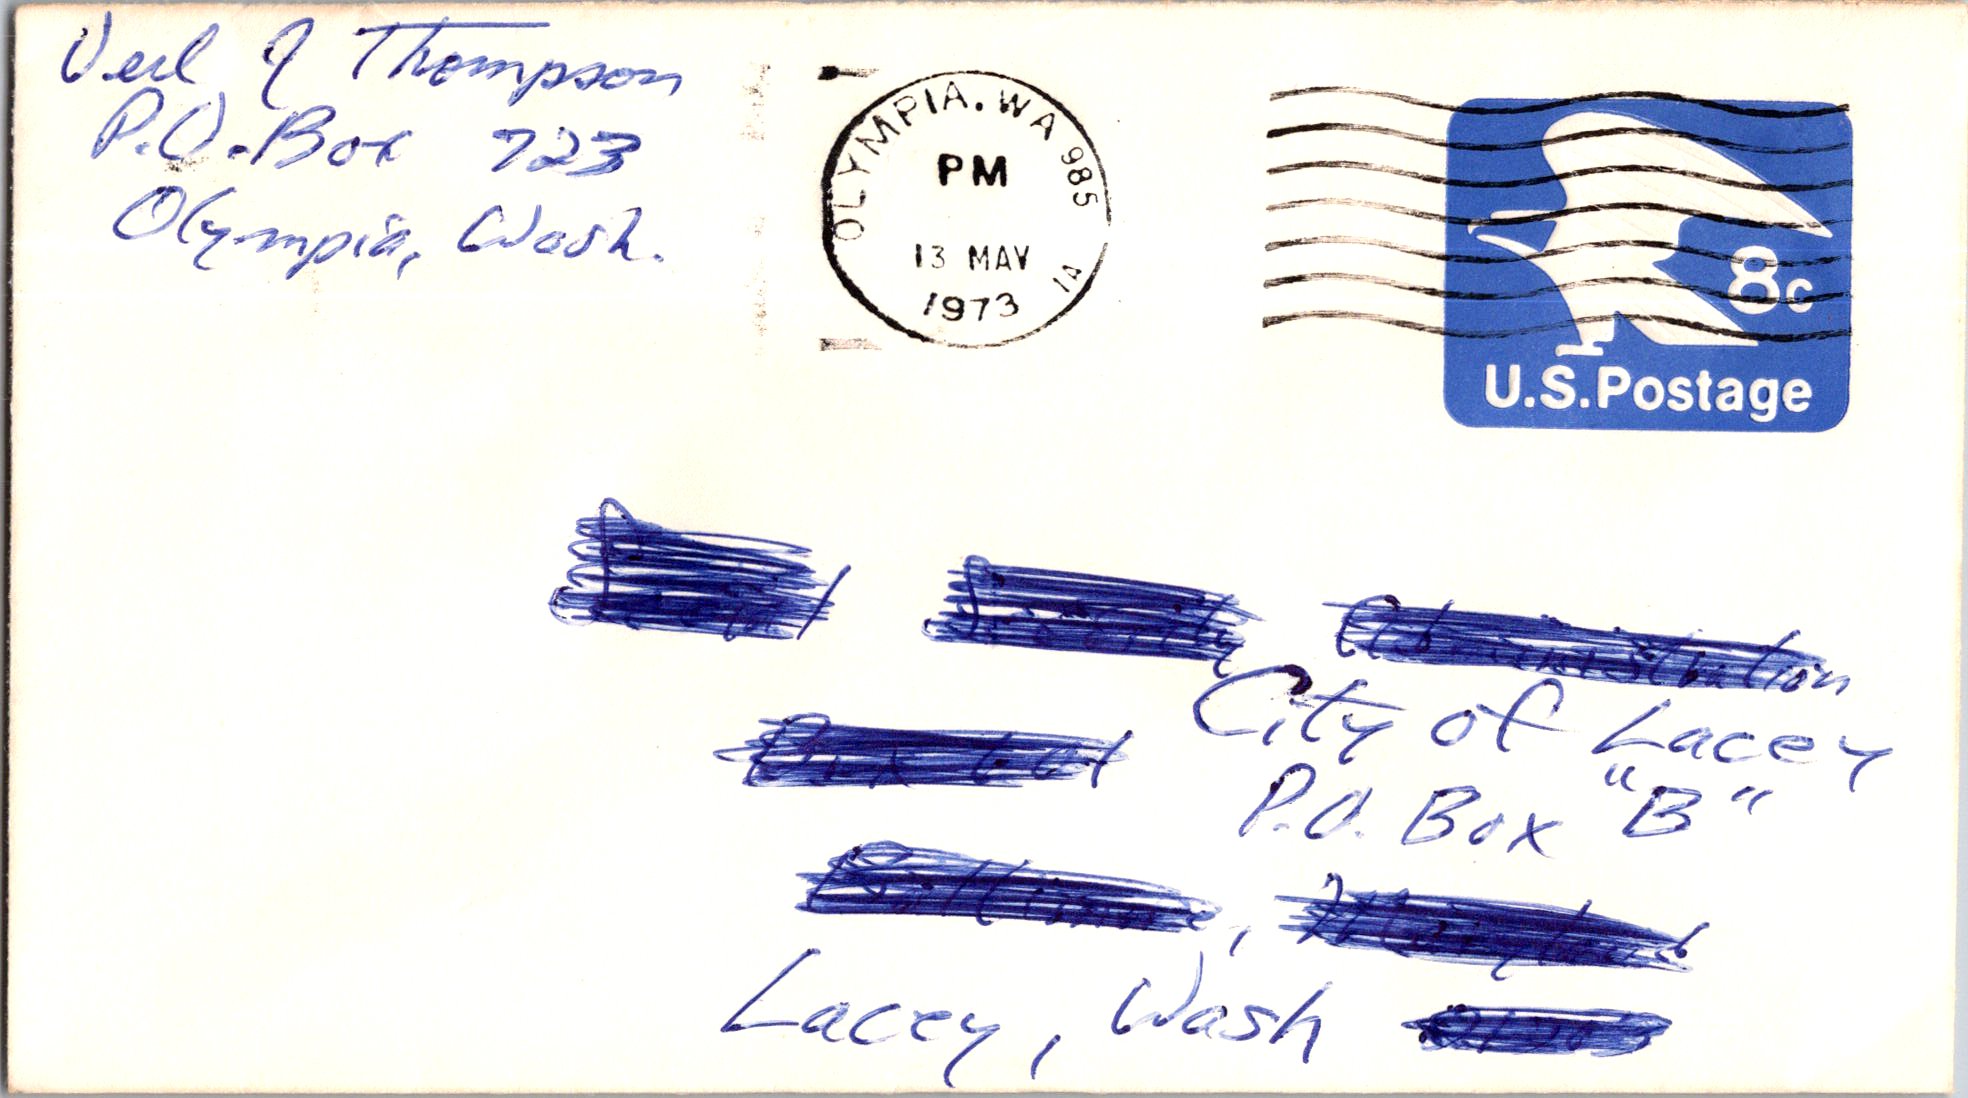 Verl J Thompson
P.O. Box 723
Olympia, Wash.
OLYMPIA. WA 985
PM
13 MAY
1973
1A
8c
U.S. Postage
Administration
City of Lacey
P.O. Box "B"
Lacey, Wash